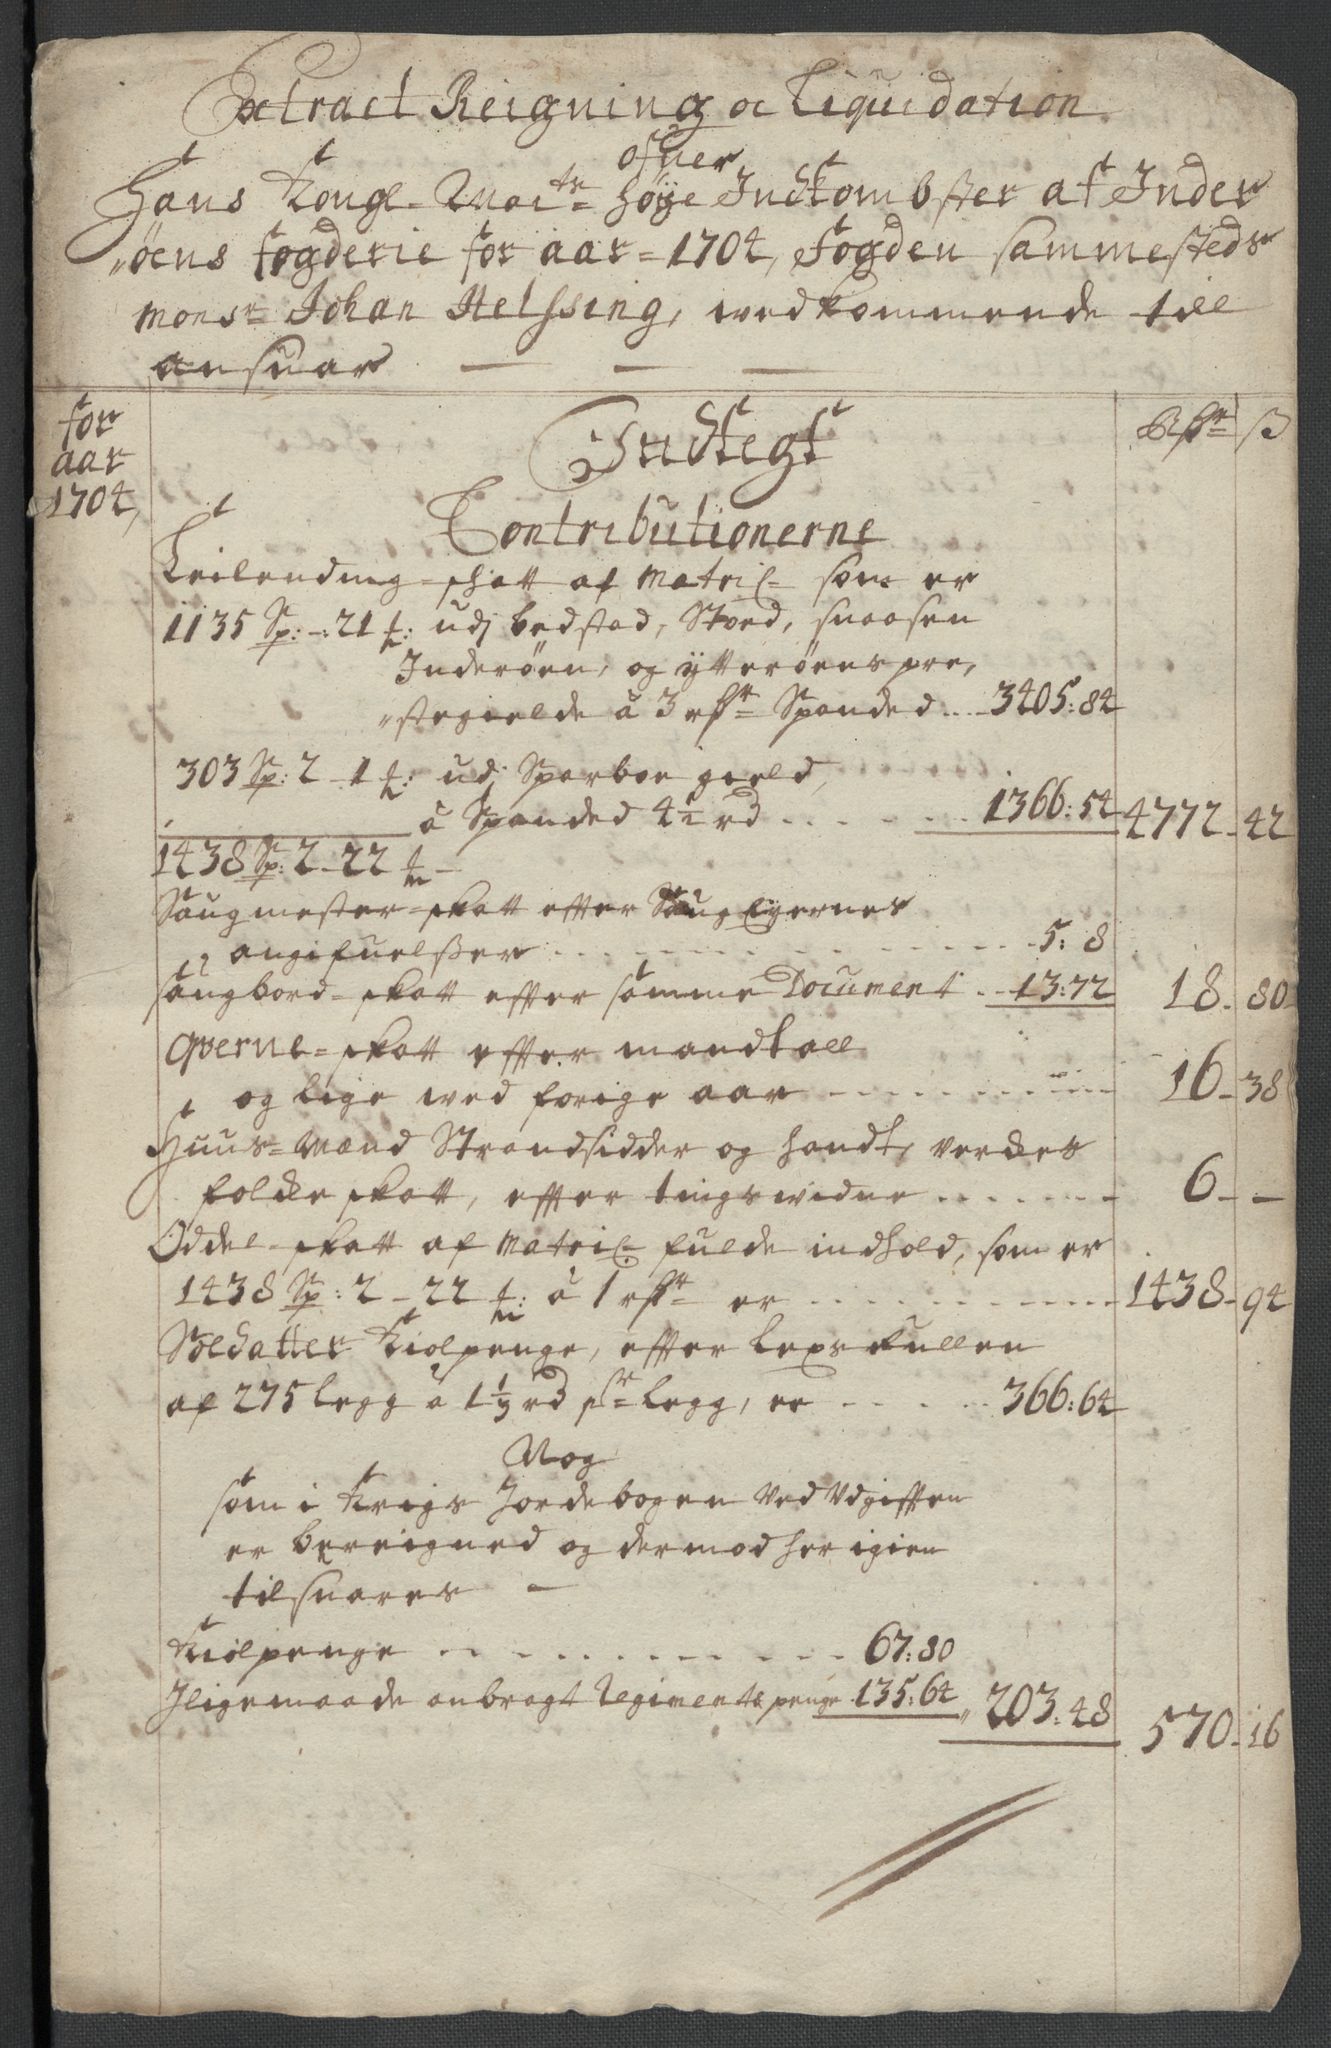 Extract Reigning oc Liquidation
ofuer
Hans Kongl. Maitz høye Indkombster af Inder
"øens fogderie for aar = 1704, Fogden sammesteds
Monsr Johan Helssing, wedkommende till
ansuar — — —
for
aar
1704,
Rdr ß
Indtegt
Contributionerne
Leilending-skatt af Matric- som er
1135 Sp: -: 21 udj bedstad, Stod, snaasen
Inderøen, og ytterøens pre,
"stegielde à 3 rdr Spanded .... 3405: 84
303 Sp: 2 - 1 udj Sparboe gield,
à Spanded 4½ rd ...... 1366: 54 4772 - 42
1438 Sp: 2 - 22
Saugmester-skatt efter Saug Eyernes
angifuelßer ........ 5: 8
saugbord-skatt efter samme Document .. 13: 72 18 - 80
Qverne-skatt efter mandtall
og lige wed forige aar ........ 16 - 38
Huus-Mænd Strandsidder og handt, verckes
folckeskatt, efter tingswidne ....... 6 - -
Oddel-skatt af Matric- fulde indhold, som er
1438 Sp: 2 - 22 à 1 rdr er ........ 1438 - 94
Soldatter Kiolpenge, efter Legsrullen
af 275 legg à 1⅓ rd pr legg, er ..... 366: 64
Nog
som i Krigs Jordebogen ved Udgifften
er bereigned og dermod her igien
tilsuares —
Kiolpenge ........ 67: 80
Iligemaade anbragt Regimentspenge 135: 64 " 203: 48 570 - 16